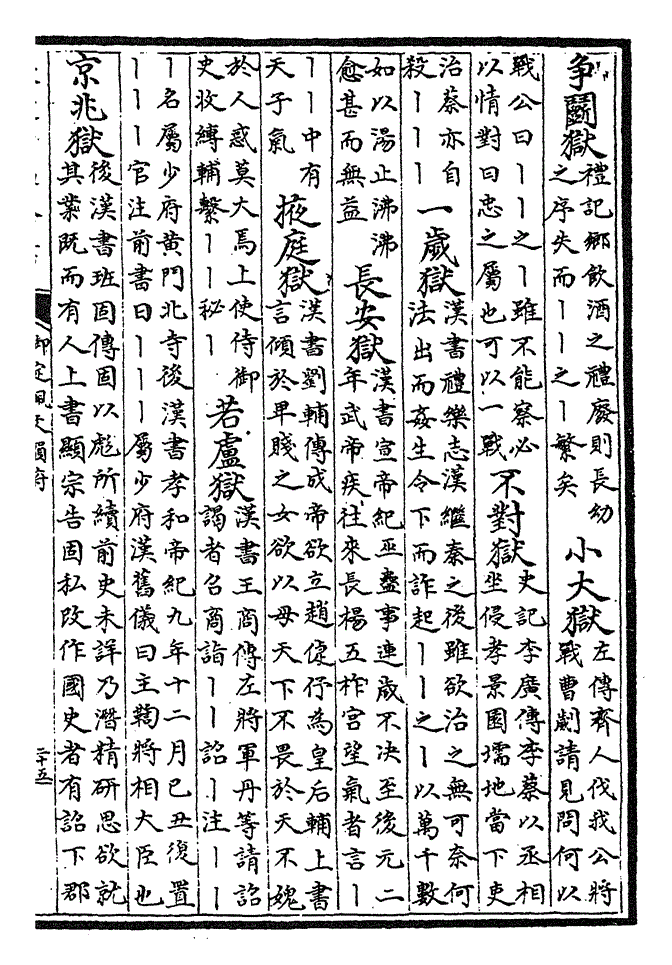 争鬭獄
禮記鄉飲酒之禮廢則長幼
之序失而丨丨之丨繁矣
小大獄
左傳齊人伐我公將
戰曹劌請見問何以
戰公曰丨丨之丨雖不能察必
以情對曰忠之屬也可以一戰
不對獄
史記李廣傳李蔡以丞相
坐侵孝景園壖地當下吏
治蔡亦自
殺丨丨丨
一歲獄
漢書禮樂志漢繼秦之後雖欲治之無可奈何
法出而姦生令下而詐起丨丨之丨以萬千數
如以湯止沸沸
愈甚而無益
長安獄
漢書宣帝紀巫蠱事連歲不决至後元二
年武帝疾往來長楊五柞宮望氣者言丨
丨丨中有
天子氣
掖庭獄
漢書劉輔傳成帝欲立趙倢伃為皇后輔上書
言傾於卑賤之女欲以母天下不畏於天不媿
於人惑莫大焉上使侍御
史收縛輔繫丨丨秘丨
若盧獄
漢書王商傳左將軍丹等請詔
謁者召商詣丨丨詔丨注丨丨
丨名屬少府黄門北寺後漢書孝和帝紀九年十二月已丑復置
丨丨丨官注前書曰丨丨丨屬少府漢舊儀曰主鞫將相大臣也
京兆獄
後漢書班固傳固以彪所續前史未詳乃潛精研思欲就
其業既而有人上書顯宗告固私改作國史者有詔下郡
御定佩文韻府
二十五